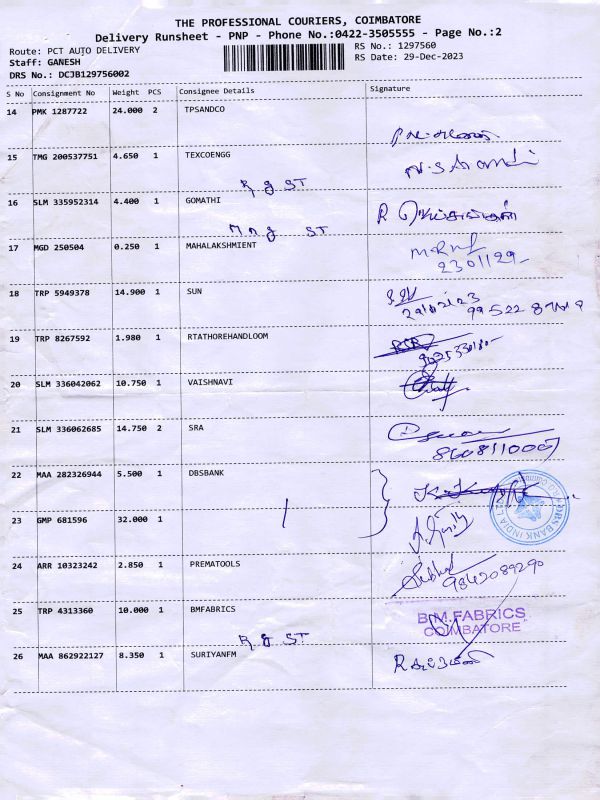 THE PROFESSIONAL COURIERS, COIMBATORE
Delivery Runsheet - PNP - Phone No.:0422-3505555 - Page No.:2
Route: PCT AUTO DELIVERY RS No.: 1297560
Staff: GANESH RS Date: 29-Dec-2023
DRS No.: DCJB129756002
S No Consignment No Weight PCS Consignee Details Signature
14 PMK 1287722 24.000 2 TPSANDCO
15 TMG 200537751 4.650 1 TEXCOENGG
R g ST
16 SLM 335952314 4.400 1 GOMATHI
ST
17 MGD 250504 0.250 1 MAHALAKSHMIENT
2301129
18 TRP 5949378 14.900 1 SUN
29/12/23
19 TRP 8267592 1.980 1 RTATHOREHANDLOOM
20 SLM 336042062 10.750 1 VAISHNAVI
21 SLM 336062685 14.750 2 SRA
22 MAA 282326944 5.500 1 DBSBANK
DBS BANK INDIA L
23 GMP 681596 32.000 1
24 ARR 10323242 2.850 1 PREMATOOLS
9842089290
25 TRP 4313360 10.000 1 BMFABRICS
B.M.FABRICS
COIMBATORE
R g ST
26 MAA 862922127 8.350 1 SURIYANFM